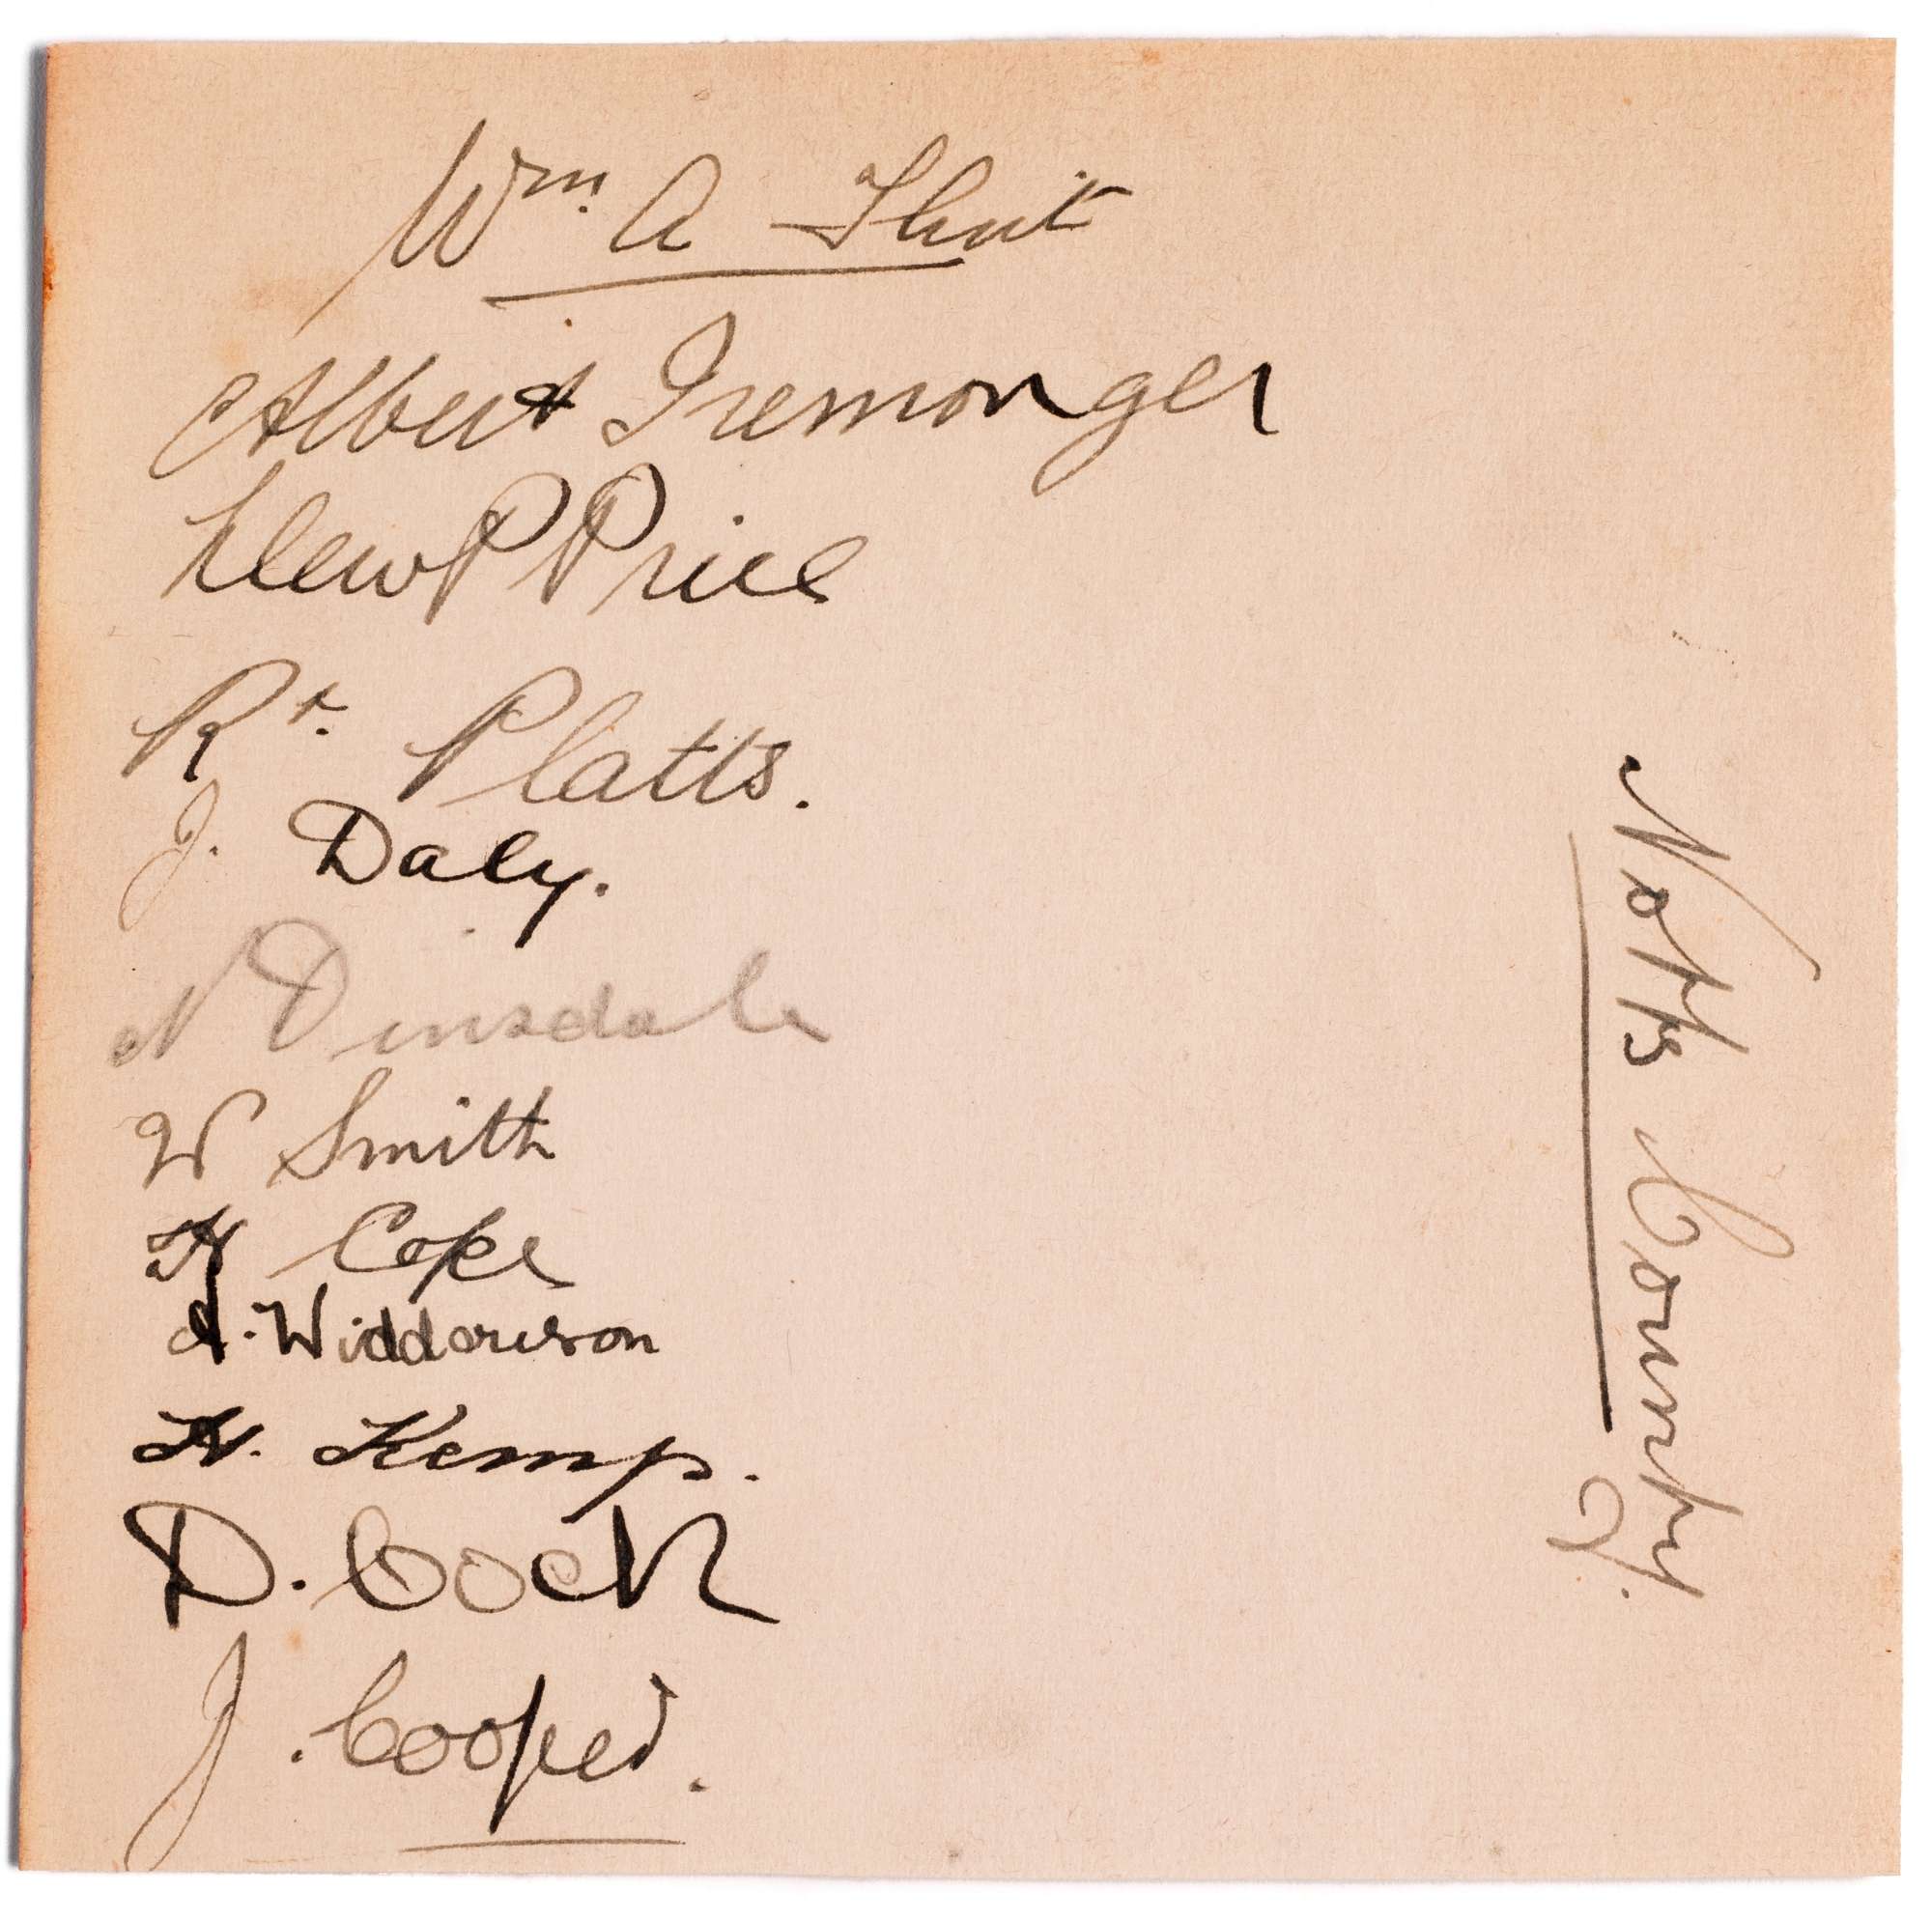 Wm. A Flint
Albert Iremonger
Llew P Price
Rt. Platts.
J. Daly.
N Dinsdale
W Smith
H Cope
A. Widdowson
H. Kemp.
D. Cock
J. Cooper.
Notts County.